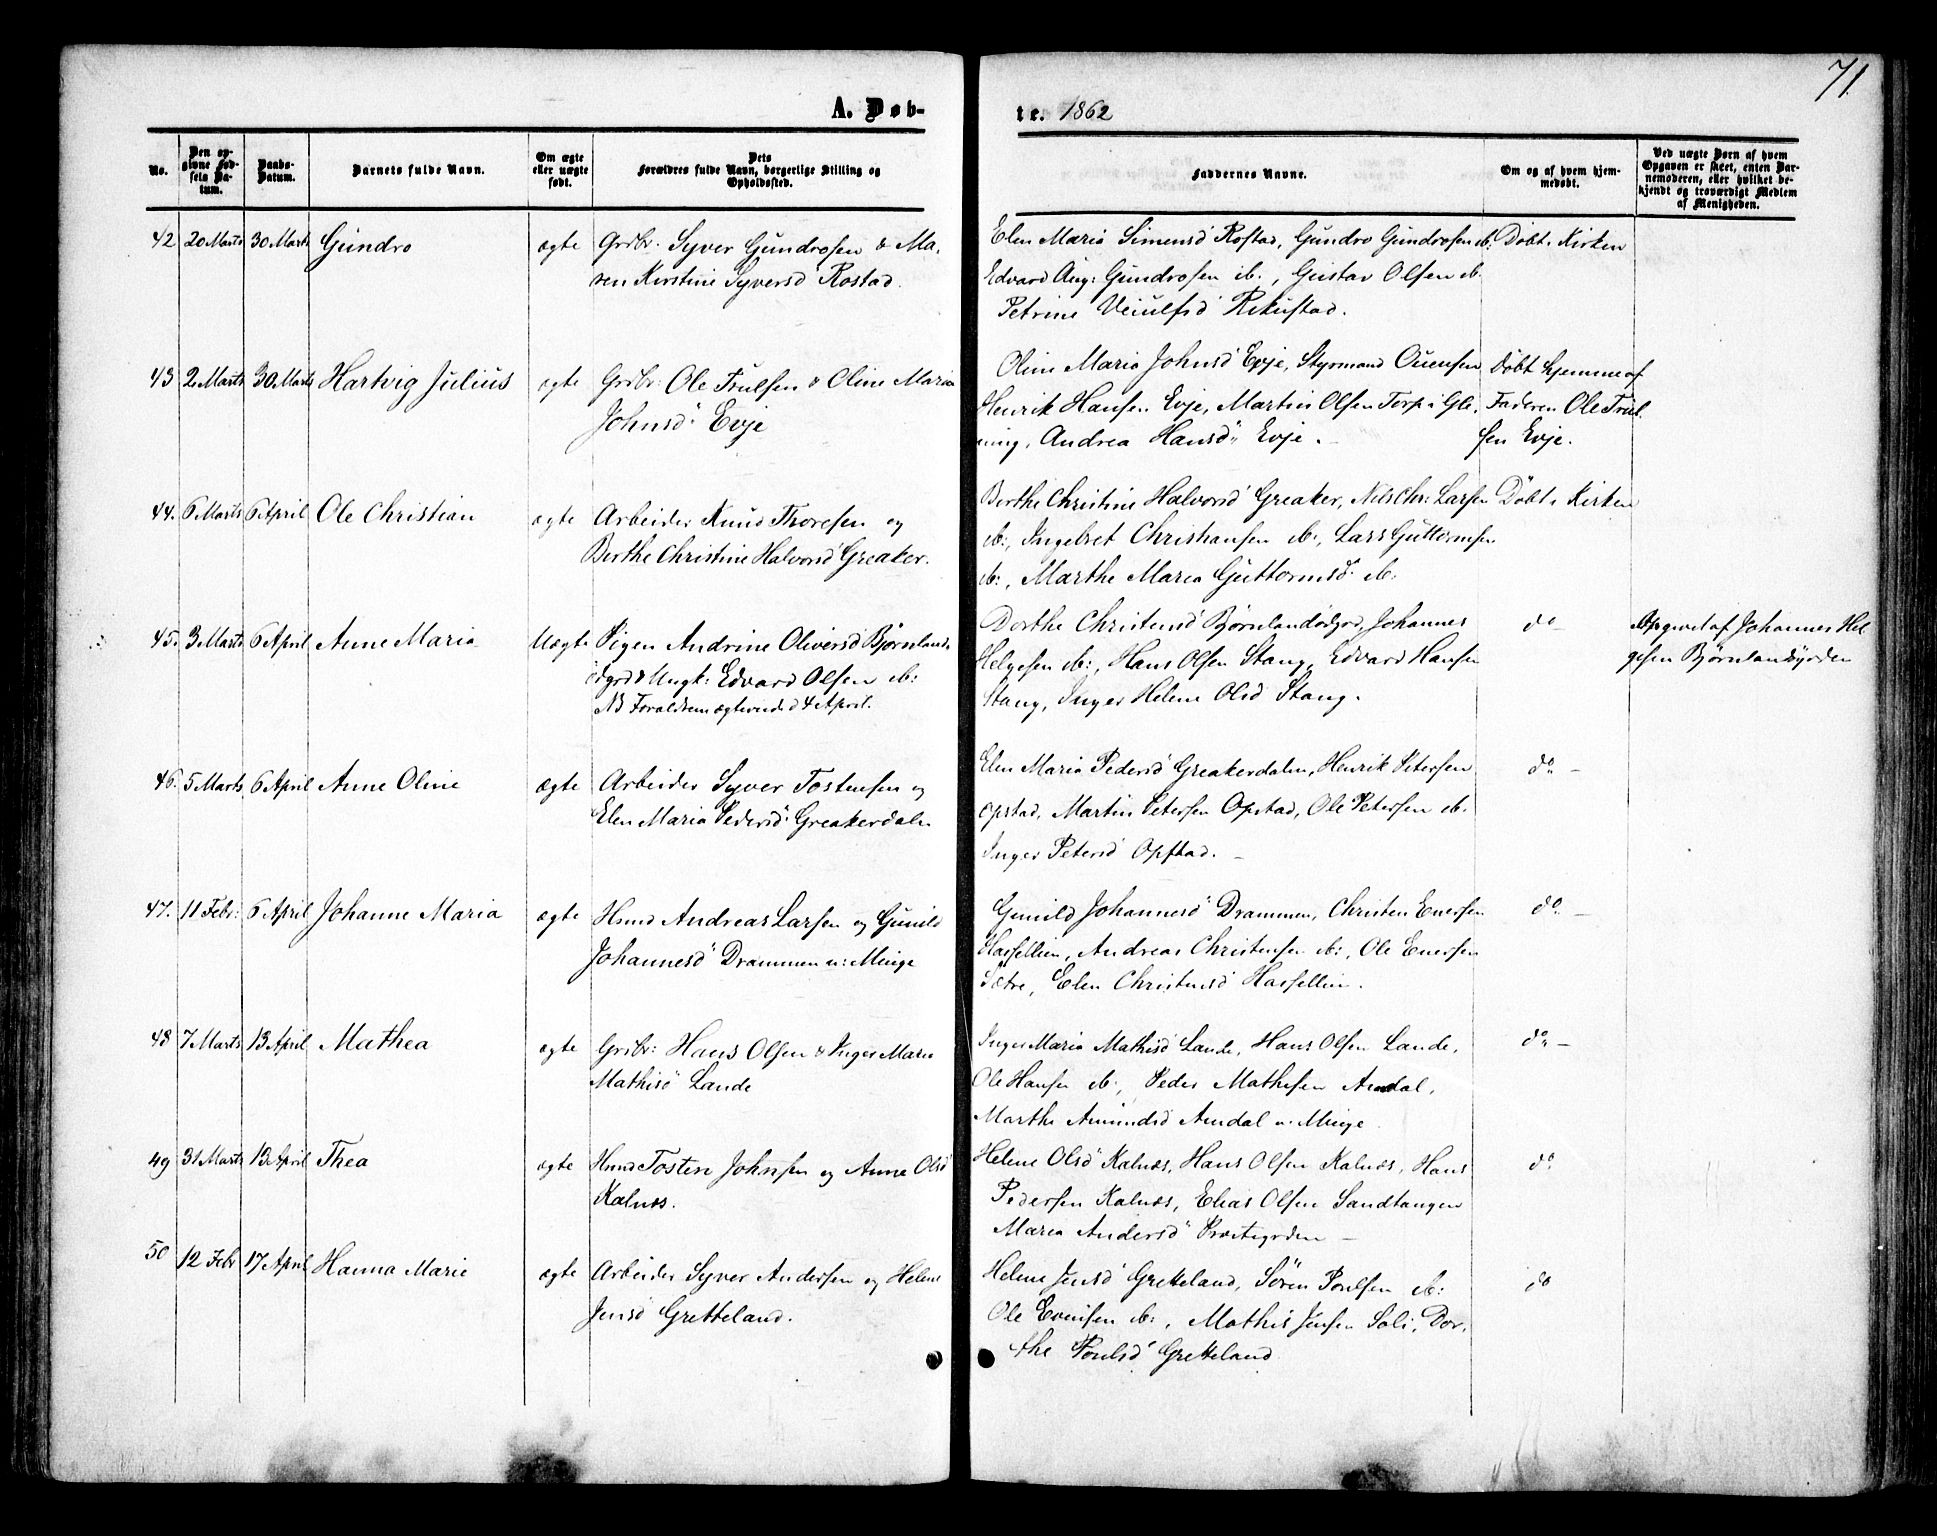 71
A. Døb-
te. 1862
No.
Den op-
givne Fød-
sels Da-
tum.
Daabs-
Datum.
Barnets fulde Navn.
Om ægte
eller uægte
født.
Dets
Forældres fulde Navn, borgerlige Stilling og
Opholdssted.
Faddernes Navne.
Om og af hvem hjem-
medøbt.
Ved uægte Børn af hvem
Opgaven er skeet, enten Bar-
nemoderen, eller hvilket be-
kjendt og troværdigt Medlem
af Menigheden.
42 20 Marts 30 Marts Gundro ægte Grdbr. Syver Gundrosen & Ma-
ren Kirstine Syversd Rostad.
Elen Maria Simensd Rostad, Gundro Gundrosen ib: Døbt i Kirken
Edvard Aug: Gundrosen ib., Gustav Olsen ib.
Petrine Veiulfsd Rekustad.
43 2 Marts 30 Marts Hartvig Julius ægte Grdbr: Ole Trulsen & Oline Maria
Johnsd" Evje
Oline Maria Johnsd Evje, Styrmand Ouensen Døbt hjemme af
Henrik Hansen Evje, Martin Olsen Torp i Gle- Faderen Ole Trul-
ning, Andrea Hansd" Evje. sen Evje.
44. 6 Marts 6 April Ole Christian ægte Arbeider Knud Thoresen og
Berthe Christine Halvorsd Greaker.
Berthe Christine Halvorsd Greaker, Nils Chr: Larsen Døbt i Kirken
ib:, Ingebret Christiansen ib:, Lars Guttormsen
ib:, Marthe Maria Guttormsd. ib:
45. 3 Marts 6 April Anne Maria Uægte Pigen Andrine Oliversd Bjørnland-
ødgrd & Ungk: Edvard Olsen ib:
NB Forældrene ægteviede d 4 April.
Dorthe Christensd Bjørnlandødgrd, Johannes do Opgivet af Johannes Hel-
Helgesen ib:, Hans Olsen Stang, Edvard Hansen gesen Bjørnlandødgrden
Stang, Inger Helene Olsd Stang.
46. 5 Marts 6 April Anne Oline ægte Arbeider Syver Tostensen og
Elen Maria Pedersd Greakerdalen
Elen Maria Pedersd Greakerdalen, Henrik Petersen do -
Opstad, Martin Petersen Opstad, Ole Petersen ib.
Inger Petersd Opstad. -
47. 11 Febr: 6 April Johanne Maria ægte Hmd Andreas Larsen og Gunild
Johannesd" Drammen u: Minge
Gunild Johannesd" Drammen, Christen Enersen do. -
Hassellien, Andreas Christensen ib:, Ole Enersen
Sætre, Elen Christensd Hassellien.
48 7 Marts 13 April Mathea ægte Grdbr: Hans Olsen & Inger Marie
Mathisd Lande
Inger Maria Mathisd Lande, Hans Olsen Lande, do -
Ole Hansen ib:, Peder Mathisen Amdal,
Marthe Amundsd Amdal u: Minge
49 31 Marts 13 April Thea ægte Hmd Tosten Johnsen og Anne Olsd
Kalnæs.
Helene Olsd Kalnæs, Hans Olsen Kalnæs, Hans do
Pedersen Kalnæs, Elias Olsen Sandtangen
Maria Andersd" Præstegrden -
50 12 Febr 17 April Hanna Marie ægte Arbeider Syver Andersen og Helene
Jensd Gretteland.
Helene Jensd Gretteland, Sören Poulsen ib: do
Ole Evensen ib:, Mathis Jensen Soli, Dor-
the Poulsd Gretteland